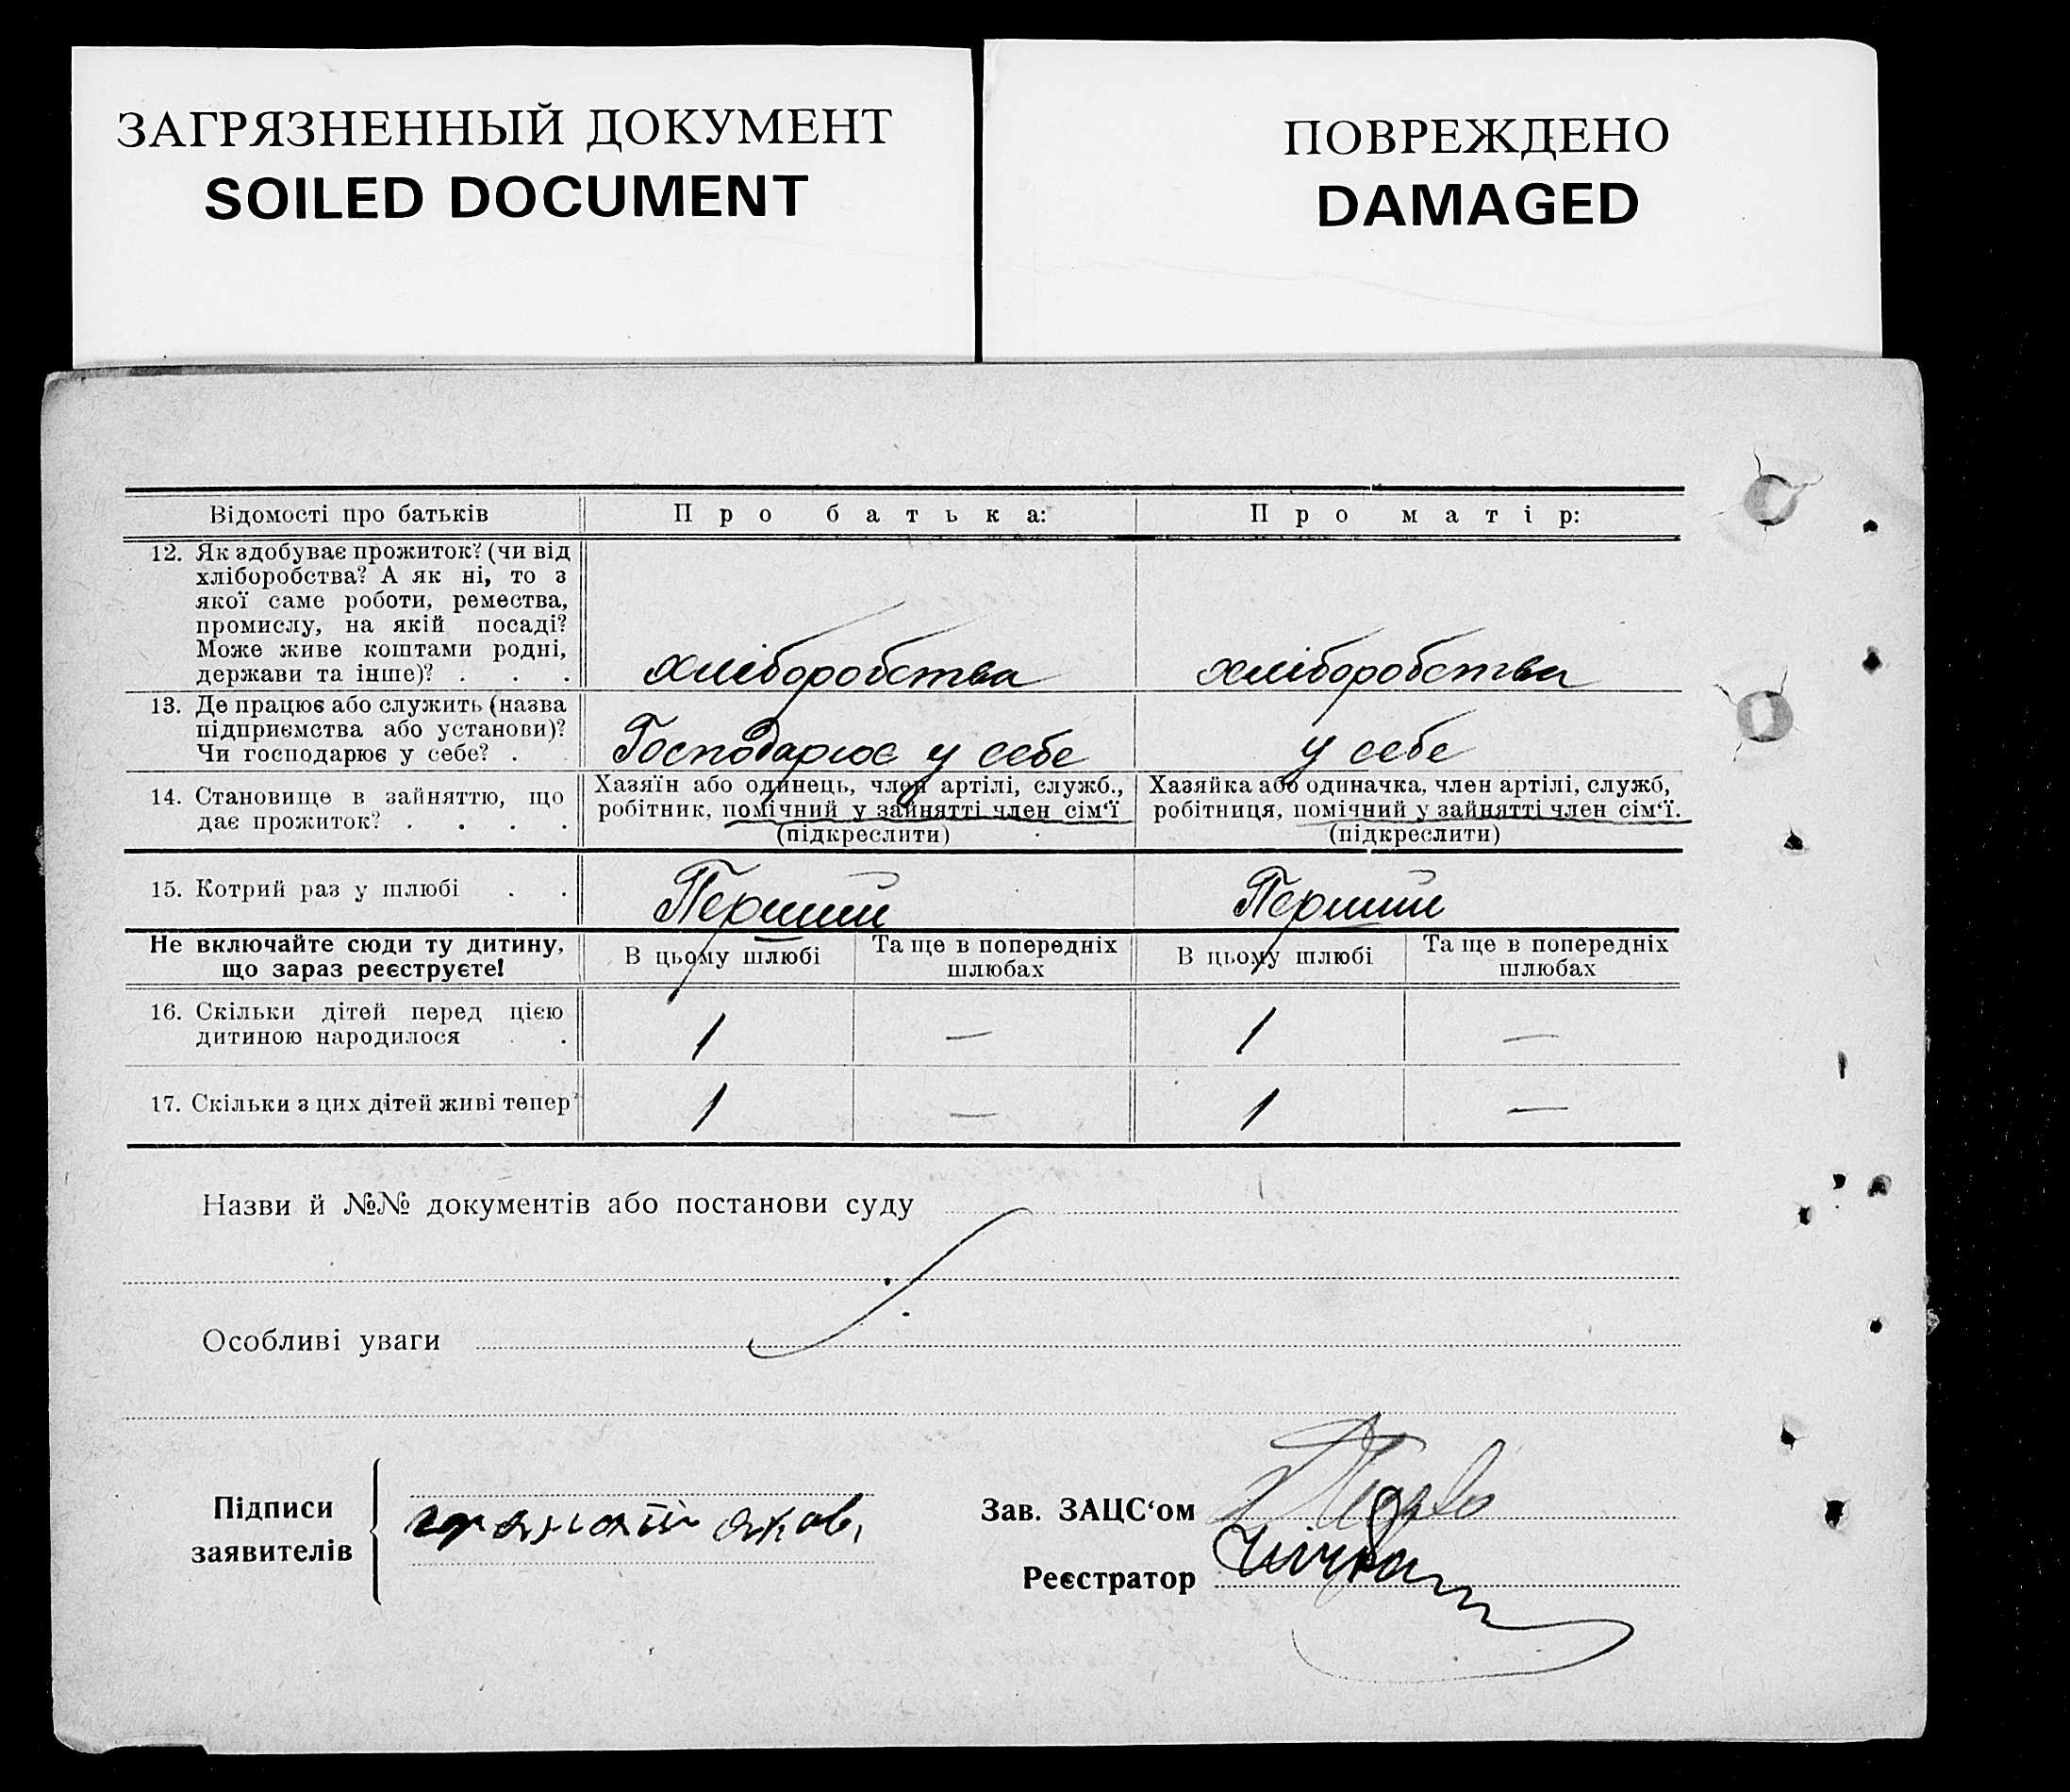 ЗАГРЯЗНЕННЫЙ ДОКУМЕНТ
SOILED DOCUMENT
ПОВРЕЖДЕНО
DAMAGED
Відомості про батьків
Про батька:
Про матір:
12. Як здобуває прожиток? (чи від
хліборобства? А як ні, то з
якої саме роботи, ремества,
промислу, на якій посаді?
Може живе коштами родні,
держави та інше)? . . .
хліборобства
хліборобства
13. Де працює або служить (назва
підприємства або установи)?
Чи господарює у себе? .
Господарює у себе
у себе
14. Становище в зайняттю, що
дає прожиток? . . . .
Хазяїн або одинець, член артілі, служб.,
робітник, помічний у зайнятті член сім‘ї
(підкреслити)
Хазяйка або одиначка, член артілі, служб,
робітниця, помічний у зайнятті член сім‘ї.
(підкреслити)
15. Котрий раз у шлюбі . .
Перший
Перший
Не включайте сюди ту дитину,
що зараз реєструєте!
В цьому шлюбі
Та ще в попередніх
шлюбах
В цьому шлюбі
Та ще в попередніх
шлюбах
16. Скільки дітей перед цією
дитиною народилося . .
1
—
1
—
17. Скільки з цих дітей живі тепер
1
—
1
—
Назви й №№ документів або постанови суду
Особливі уваги
Підписи
заявителів
Зав. ЗАЦС‘ом
Реєстратор